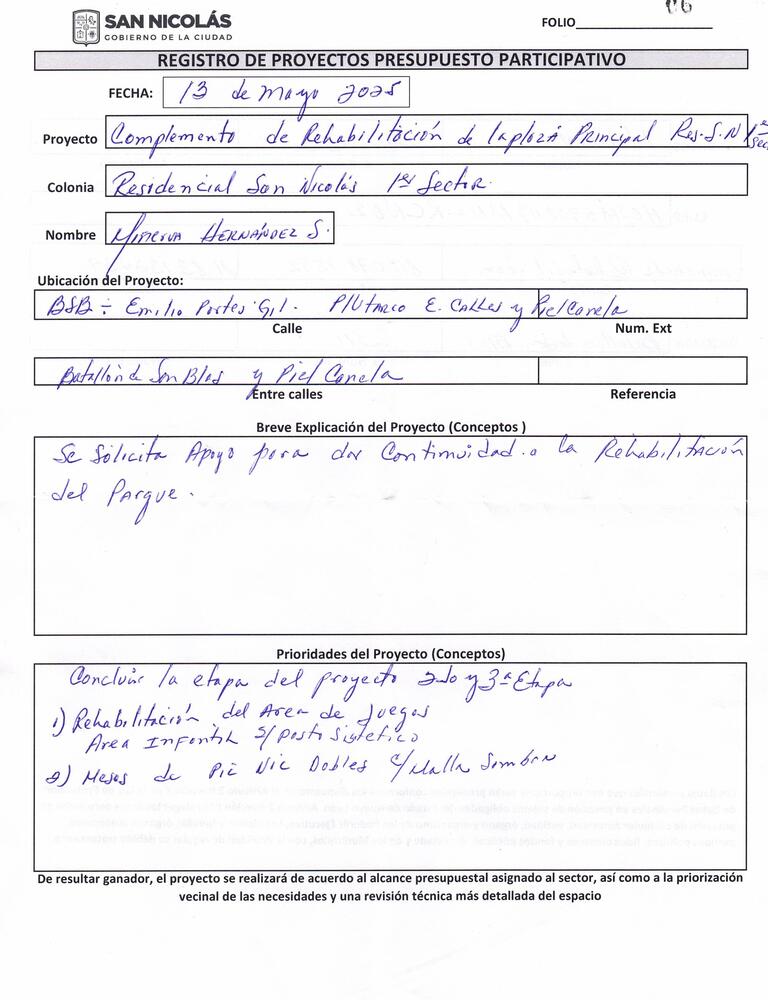 SAN NICOLÁS
GOBIERNO DE LA CIUDAD
FOLIO
REGISTRO DE PROYECTOS PRESUPUESTO PARTICIPATIVO
FECHA: 13 de Mayo 2025
Proyecto Complemento de Rehabilitación de la plaza Principal Res. S. N 1er Sec
Colonia Residencial San Nicolás 1er Sector.
Nombre Minerva Hernández S.
Ubicación del Proyecto:
BSB ÷ Emilio Portes Gil. Plutarco E. Calles y Piel Canela
Calle Num. Ext
Batallón de San Blas y Piel Canela
Entre calles Referencia
Breve Explicación del Proyecto (Conceptos )
Se Solicita Apoyo para dar Continuidad a la Rehabilitación
del Parque.
Prioridades del Proyecto (Conceptos)
Concluir la etapa del proyecto 2do y 3a Etapa
1) Rehabilitación del Area de Juegos
Area Infantil s/ Pasto Sistetico
2) Mesas de Pic Nic Dobles c/ Malla Sombra
De resultar ganador, el proyecto se realizará de acuerdo al alcance presupuestal asignado al sector, así como a la priorización
vecinal de las necesidades y una revisión técnica más detallada del espacio